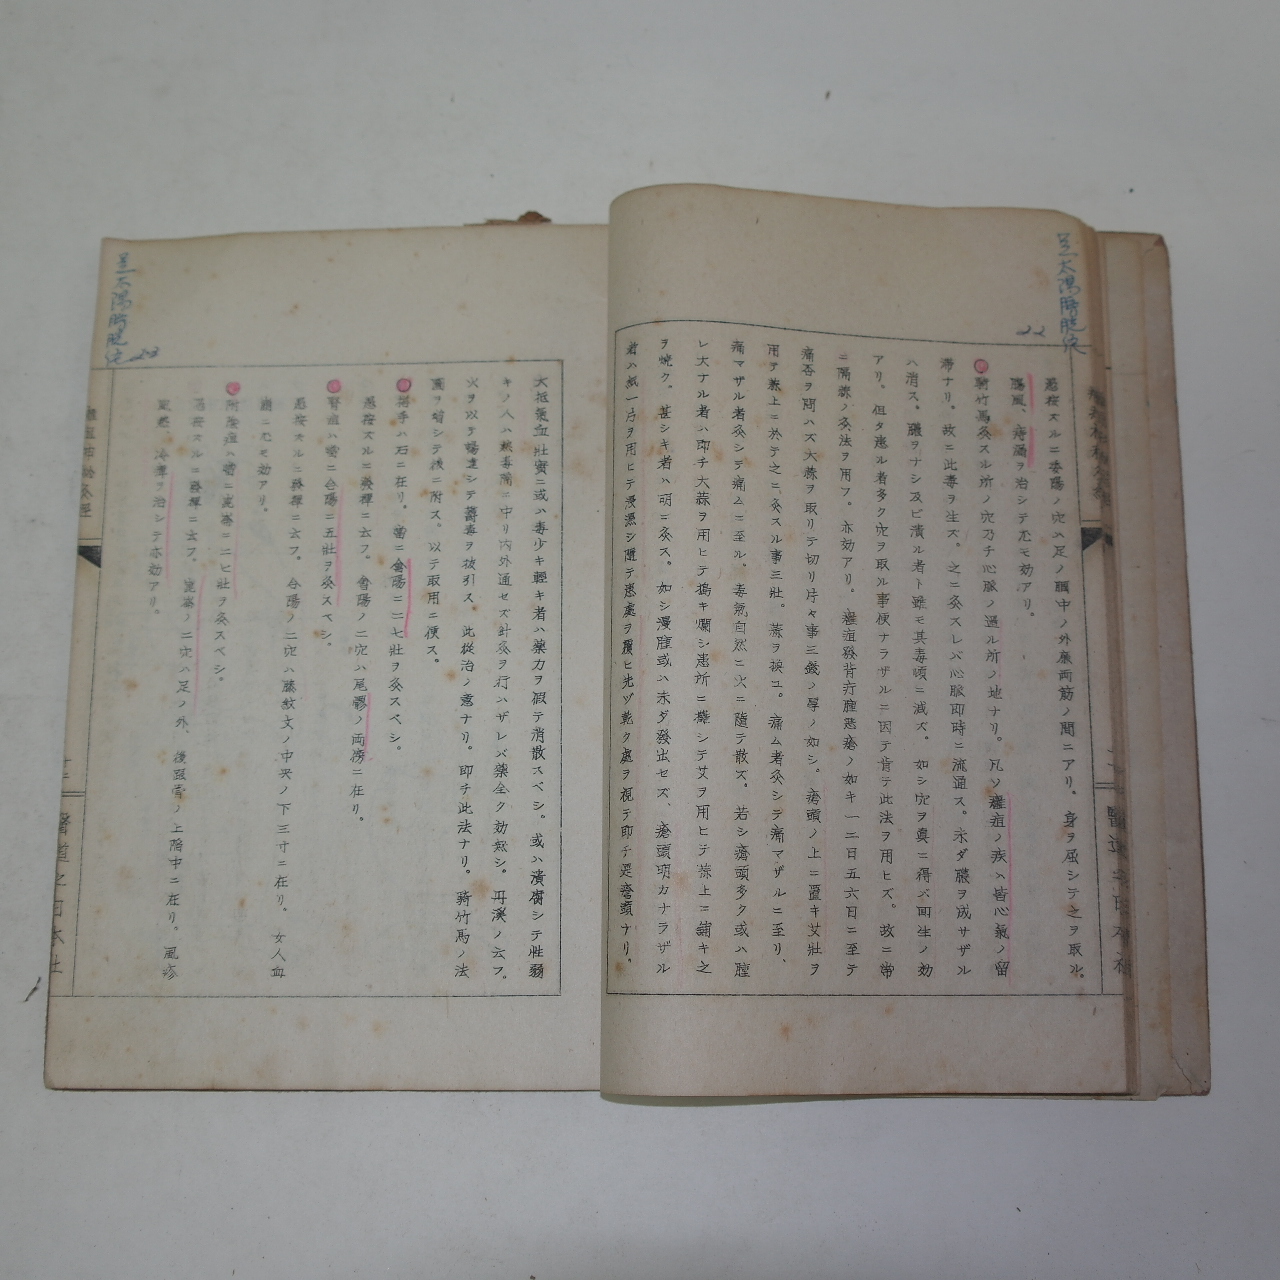 足太陽膀胱經
22
愚按スルニ委陽ノ穴ハ足ノ膕中ノ外廉両筋ノ間ニアリ。身ヲ屈シテ之ヲ取ル。
腸風、痔漏ヲ治シテ尤モ効アリ。
騎竹馬灸スル所ノ穴乃チ心脉ノ過ル所ノ地ナリ。凡ソ癰疽ノ疾ハ皆心氣ノ留
滞ナリ。故ニ此毒ヲ生ズ。之ニ灸スレバ心脉即時ニ流通ス。未ダ膿ヲ成サザル
ハ消ス。膿ヲナシ及ビ潰ル者ト雖モ其毒頓ニ减ズ。如シ穴ヲ真ニ得バ回生ノ効
アリ。但タ患ル者多ク穴ヲ取ル事便ナラザルニ因テ肯テ此法ヲ用ヒズ。故ニ常
ニ隔蒜ノ灸法ヲ用フ。亦効アリ。癰疽發背疔腫悪瘡ノ如キ一二日五六日ニ至テ
痛否ヲ問ハズ大蒜ヲ取リテ切リ片々事三錢ノ厚ノ如シ。瘡頭ノ上ニ置キ艾壮ヲ
用テ蒜上ニ於テ之ニ灸スル事三壮。蒜ヲ換ユ。痛ム者灸シテ痛マザルニ至リ、
痛マザル者灸シテ痛ムニ至ル。毒氣自然ニ火ニ隨テ散ズ。若シ瘡頭多ク或ハ腫
レ大ナル者ハ即チ大蒜ヲ用ヒテ搗キ爛シ患所ニ攤シテ艾ヲ用ヒテ蒜上ニ鋪キ之
ヲ燒ク。甚シキ者ハ明ニ灸ス。如シ漫腫或ハ未ダ發出セズ、瘡頭明カナラザル
者ハ紙一片ヲ用ヒテ浸濕シ隨テ患處ヲ覆ヒ先ヅ乾ク處ヲ視テ即チ是瘡頭ナリ。
足太陽膀胱經
23
大抵氣血壯實ニ或ハ毒少キ輕キ者ハ藥力ヲ假テ消散スベシ。或ハ潰腐シテ性弱
キノ人ハ熱毒隔ニ中リ内外通セズ針灸ヲ行ハザレバ藥全ク効無シ。丹溪ノ云フ。
火ヲ以テ暢達シテ蓄毒ヲ拔引ス。此從治ノ意ナリ。即チ此法ナリ。騎竹馬ノ法
圖ヲ寫シテ後ニ附ス。以テ取用ニ便ス。
搭手ハ右ニ在リ。當ニ會陽ニ二七壮ヲ灸スベシ。
愚按スルニ發揮ニ云フ。會陽ノ二穴ハ尾髎ノ両傍ニ在リ。
腎疽ハ當ニ合陽ニ五壮ヲ灸スベシ。
愚按スルニ發揮ニ云フ。合陽ノ二穴ハ膝紋文ノ中央ノ下三寸ニ在リ。女人血
崩ニ尤モ効アリ。
附陰疽ハ當ニ崑崙ニ二七壮ヲ灸スベシ。
愚按スルニ發揮ニ云フ。崑崙ノ二穴ハ足ノ外、後踝骨ノ上陷中ニ在リ。風疹
風熱、冷痺ヲ治シテ亦効アリ。
十二
醫道之日本社